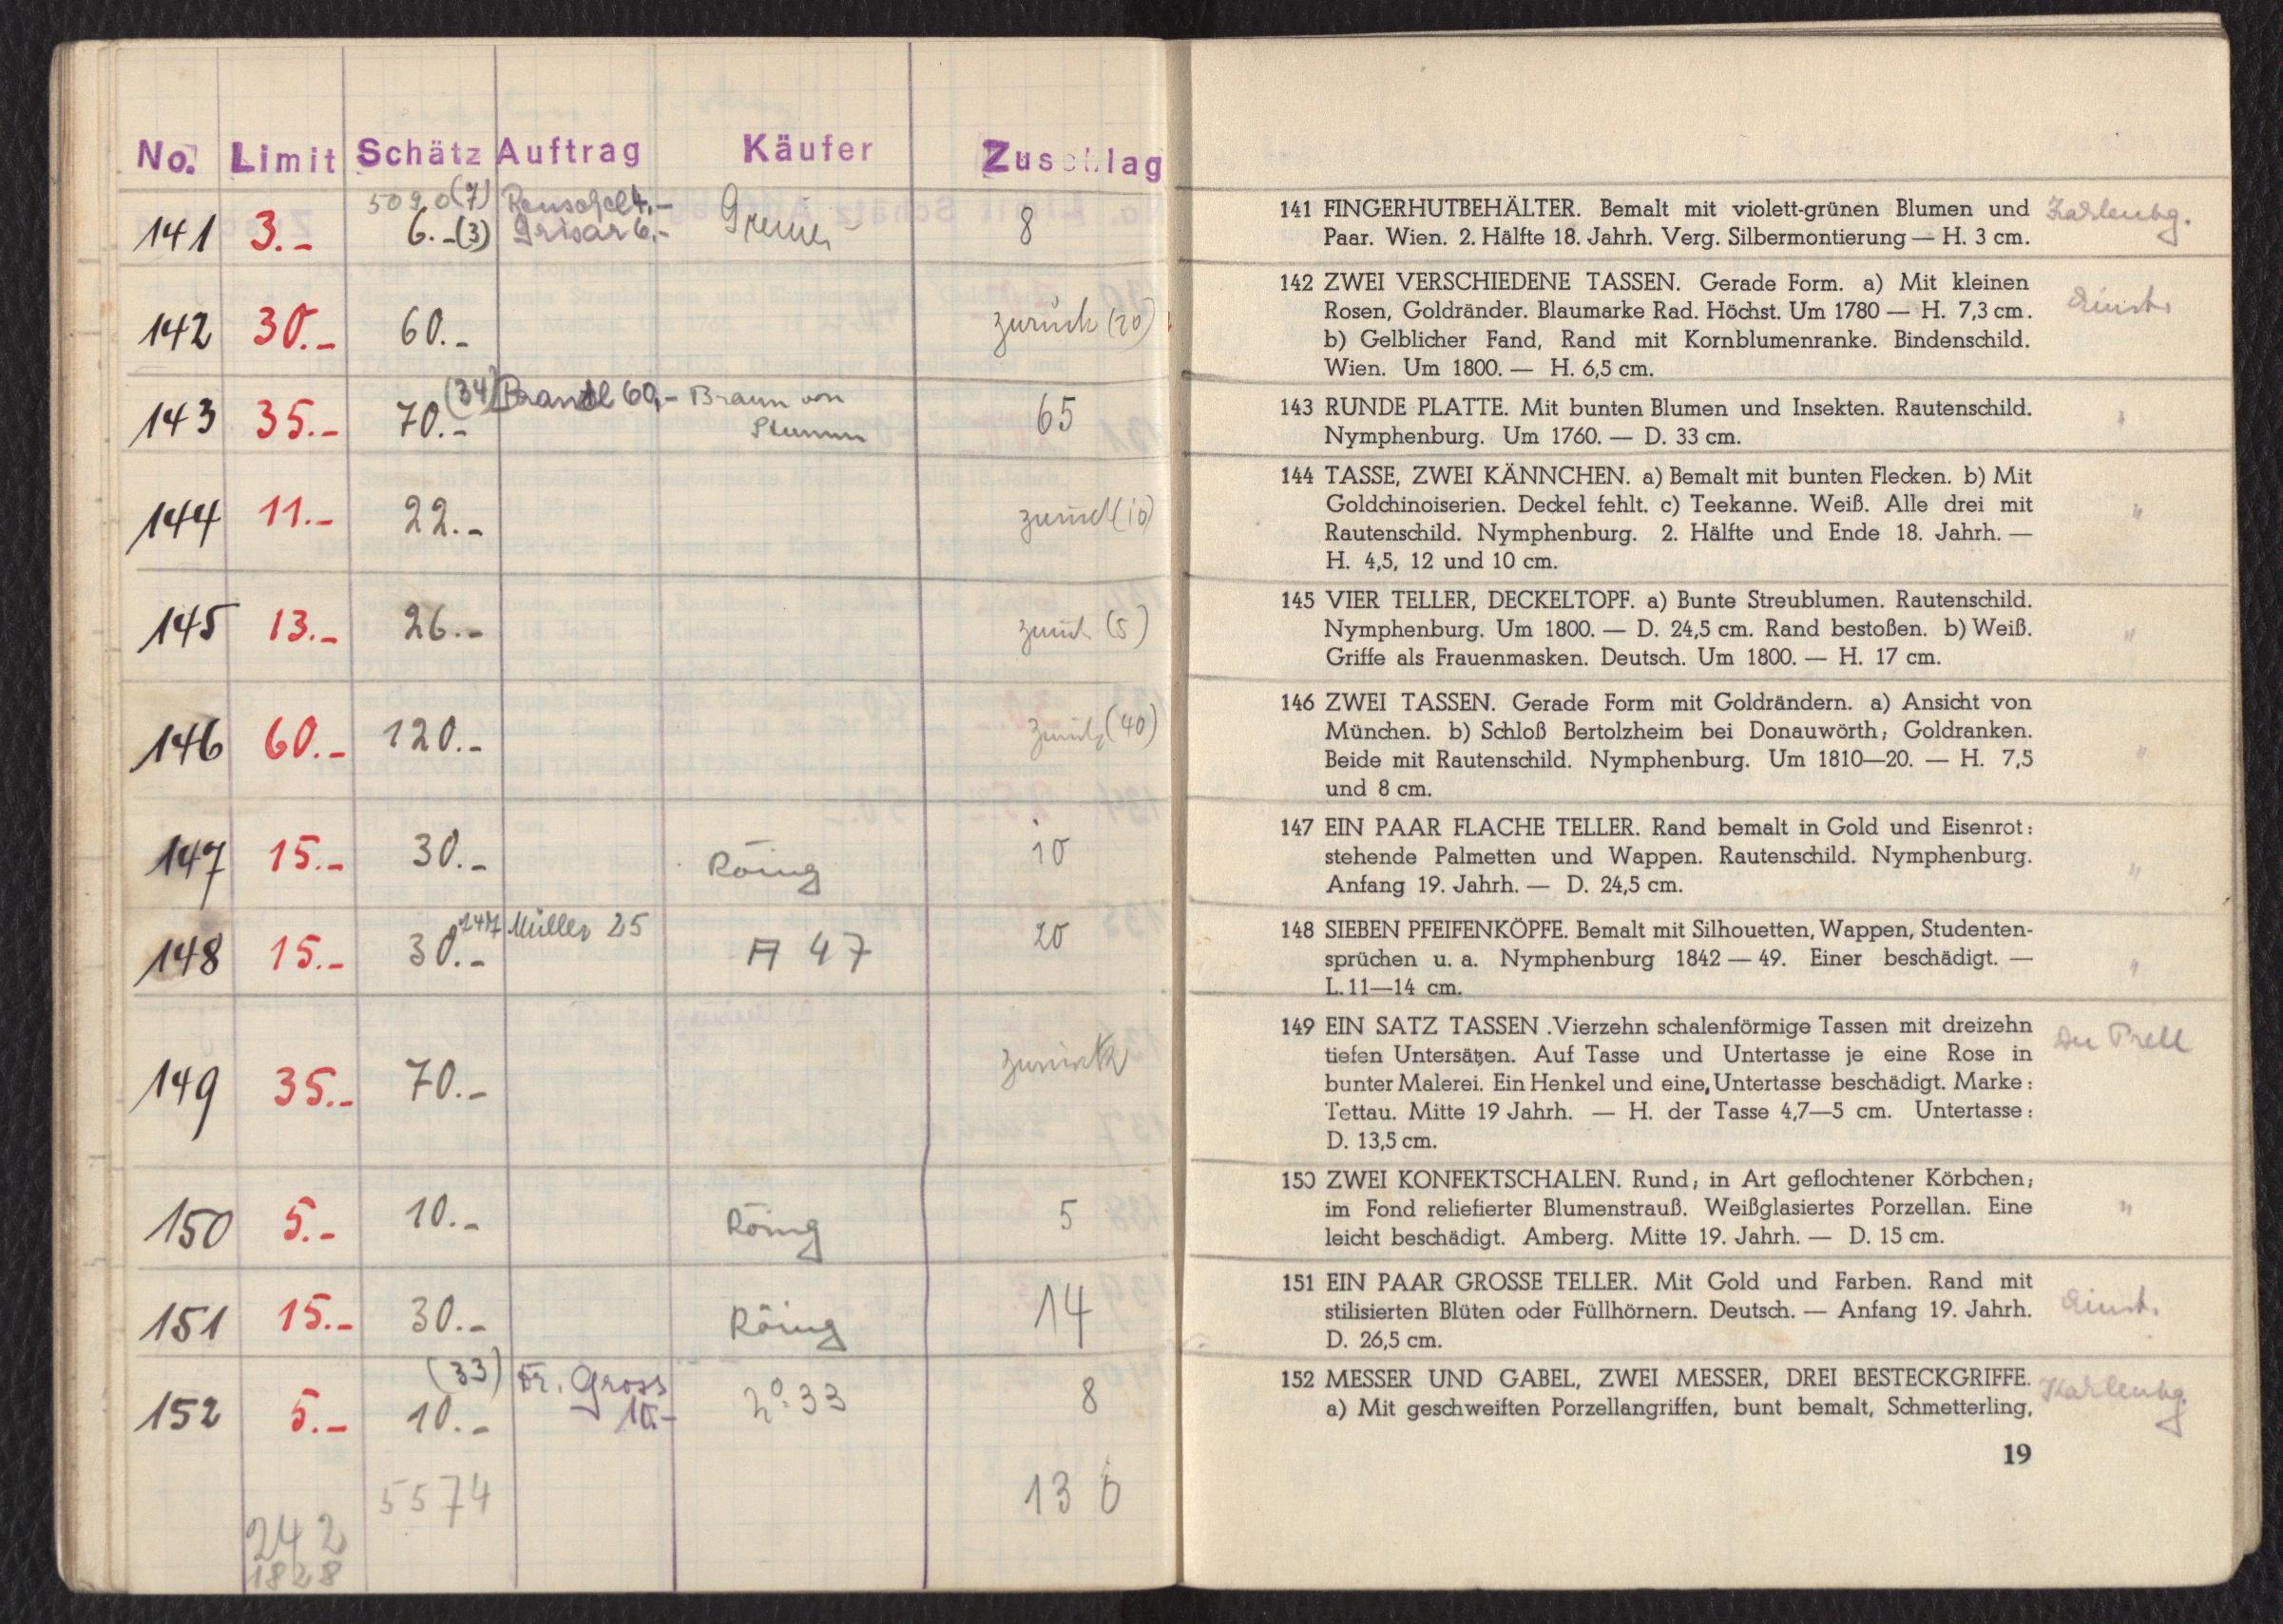 No. Limit Schätz Auftrag Käufer Zuschlag
5090 (7) 4.-
141 3.- 6.- (3) Grisar 6.- 8
142 30.- 60.- zurück (20)
143 35.- 70.- (34) Brandl 60,- Braun von 65
Stumm
144 11.- 22.- zurück (10)
145 13.- 26.- zurück (5)
146 60.- 120.- zurück (40)
147 15.- 30.- Röing 10
148 15.- 30.- 147 Müller 25 A 47 20
149 35.- 70.- zurück
150 5.- 10.- Röing 5
151 15.- 30.- Röing 14
(33) Dr. Gross
152 5.- 10.- 10.- No 33 8
5574 130
242
1828
141 FINGERHUTBEHÄLTER. Bemalt mit violett-grünen Blumen und
Paar. Wien. 2. Hälfte 18. Jahrh. Verg. Silbermontierung — H. 3 cm.
142 ZWEI VERSCHIEDENE TASSEN. Gerade Form. a) Mit kleinen
Rosen, Goldränder. Blaumarke Rad. Höchst. Um 1780 — H. 7,3 cm.
b) Gelblicher Fand, Rand mit Kornblumenranke. Bindenschild.
Wien. Um 1800. — H. 6,5 cm.
143 RUNDE PLATTE. Mit bunten Blumen und Insekten. Rautenschild. "
Nymphenburg. Um 1760. — D. 33 cm.
144 TASSE, ZWEI KÄNNCHEN. a) Bemalt mit bunten Flecken. b) Mit
Goldchinoiserien. Deckel fehlt. c) Teekanne. Weiß. Alle drei mit "
Rautenschild. Nymphenburg. 2. Hälfte und Ende 18. Jahrh. —
H. 4,5, 12 und 10 cm.
145 VIER TELLER, DECKELTOPF. a) Bunte Streublumen. Rautenschild.
Nymphenburg. Um 1800. — D. 24,5 cm. Rand bestoßen. b) Weiß. "
Griffe als Frauenmasken. Deutsch. Um 1800. — H. 17 cm.
146 ZWEI TASSEN. Gerade Form mit Goldrändern. a) Ansicht von
München. b) Schloß Bertolzheim bei Donauwörth; Goldranken.
Beide mit Rautenschild. Nymphenburg. Um 1810—20. — H. 7,5 "
und 8 cm.
147 EIN PAAR FLACHE TELLER. Rand bemalt in Gold und Eisenrot:
stehende Palmetten und Wappen. Rautenschild. Nymphenburg. "
Anfang 19. Jahrh. — D. 24,5 cm.
148 SIEBEN PFEIFENKÖPFE. Bemalt mit Silhouetten, Wappen, Studenten-
sprüchen u. a. Nymphenburg 1842 — 49. Einer beschädigt. — "
L. 11—14 cm.
149 EIN SATZ TASSEN .Vierzehn schalenförmige Tassen mit dreizehn
tiefen Untersätzen. Auf Tasse und Untertasse je eine Rose in Prell
bunter Malerei. Ein Henkel und eine, Untertasse beschädigt. Marke:
Tettau. Mitte 19 Jahrh. — H. der Tasse 4,7—5 cm. Untertasse:
D. 13,5 cm.
150 ZWEI KONFEKTSCHALEN. Rund; in Art geflochtener Körbchen;
im Fond reliefierter Blumenstrauß. Weißglasiertes Porzellan. Eine "
leicht beschädigt. Amberg. Mitte 19. Jahrh. — D. 15 cm.
151 EIN PAAR GROSSE TELLER. Mit Gold und Farben. Rand mit
stilisierten Blüten oder Füllhörnern. Deutsch. — Anfang 19. Jahrh.
D. 26,5 cm.
152 MESSER UND GABEL, ZWEI MESSER, DREI BESTECKGRIFFE.
a) Mit geschweiften Porzellangriffen, bunt bemalt, Schmetterling,
19